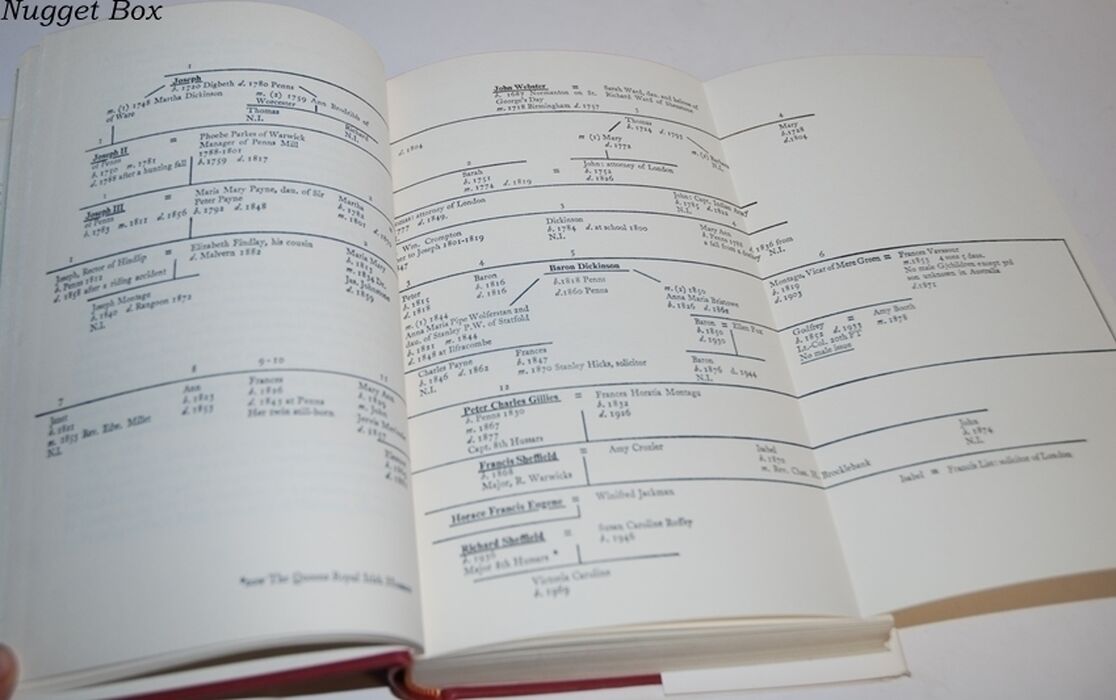 Nugget Box
1
Joseph
b. 1720 Digbeth d. 1780 Penns
m. (1) 1748 Martha Dickinson
of Ware
m. (2) 1759 Ann
of
Worcester
Thomas
N.I.
Richard
N.I.
1
Joseph II
of Penns
b. 1750 m. 1781
d. 1788 after a hunting fall
=
Phoebe Parkes of Warwick
Manager of Penns Mill
1788-1801
b. 1759 d. 1817
Joseph III
of Penns
b. 1783 m. 1812 d. 1856
=
Maria Mary Payne, dau. of Sir
Peter Payne
b. 1792 d. 1848
Martha
b. 1782
m. 1801
1
Joseph, Rector of Hindlip
b. Penns 1812
d. 1858 after a riding accident
=
Elizabeth Findlay, his cousin
d. Malvern 1882
2
Maria Mary
b. 1813
m. 1834
Jas. Johnstone
d. 1859
Joseph Montagu
b. 1840 d. Rangoon 1872
N.I.
7
Janet
b. 1821
m. 1853 Rev. Edw. Millet
N.I.
8
Ann
b. 1823
d. 1853
9-10
Frances
b. 1826
d. 1843 at Penns
Her twin still-born
11
Mary Ann
b. 1829
m. John
Jervis
d.
*now The Queens Royal Irish
John Webster
b. 1687 Normanton on St.
George's Day
m. 1718 Birmingham d. 1757
=
Sarah Ward, dau. and heiress of
Richard Ward of
d. 1804
3
Thomas
b. 1724 d. 1795
m (1) Mary
d. 1772
m. (2)
N.I.
4
Mary
b. 1728
d. 1804
2
Sarah
b. 1751
m. 1774 d. 1819
=
John: attorney of London
b. 1752
d. 1826
attorney of London
1777 d. 1849.
John: Capt. Indian Army
b. 1785 d. 1822
N.I.
Wm. Crompton
to Joseph 1801-1819
3
Dickinson
b. 1784 d. at school 1800
N.I.
4
Mary Ann
b. Penns 1788
d. 1836 from
a fall from a donkey
N.I.
3
Peter
b. 1815
d. 1818
4
Baron
b. 1816
d. 1816
m. (1) 1844
Anna Maria Pipe Wolferstan and
dau. of Stanley P.W. of Statfold
b. 1821 m. 1844
d. 1848 at Ilfracombe
5
Baron Dickinson
b. 1818 Penns
d. 1860 Penns
m. (2) 1850
Anna Maria Bristowe
b. 1826 d. 1862
6
Montagu, Vicar of Mere Green
b. 1819
d. 1903
=
Frances Vavasour
m. 1855 4 sons 5 daus.
No male Gjchildren except 3rd
son unknown in Australia
d. 1871
Charles Payne
b. 1846 d. 1862
N.I.
Frances
b. 1847
m. 1870 Stanley Hicks, solicitor
Baron = Ellen
b. 1850
d. 1930
Baron
b. 1876 d. 1944
N.I.
Godfrey
b. 1852 d. 1933
Lt.-Col. 20th FT
No male issue
=
Amy Booth
m. 1878
12
Peter Charles Gillies
b. Penns 1830
m. 1867
d. 1877
Capt. 8th Hussars
=
Frances Horatia Montagu
b. 1832
d. 1926
Francis Sheffield
b. 1868
Major, R. Warwicks
=
Amy Crozier
Isabel
b. 1870
m. Rev. Chas. H. Brocklebank
John
b. 1874
N.I.
Isabel = Francis List: solicitor of London
Horace Francis Eugene
=
Winifred Jackman
Richard Sheffield
b. 1936
Major 8th Hussars *
=
Susan Caroline Roffey
b. 1946
Victoria Caroline
b. 1969